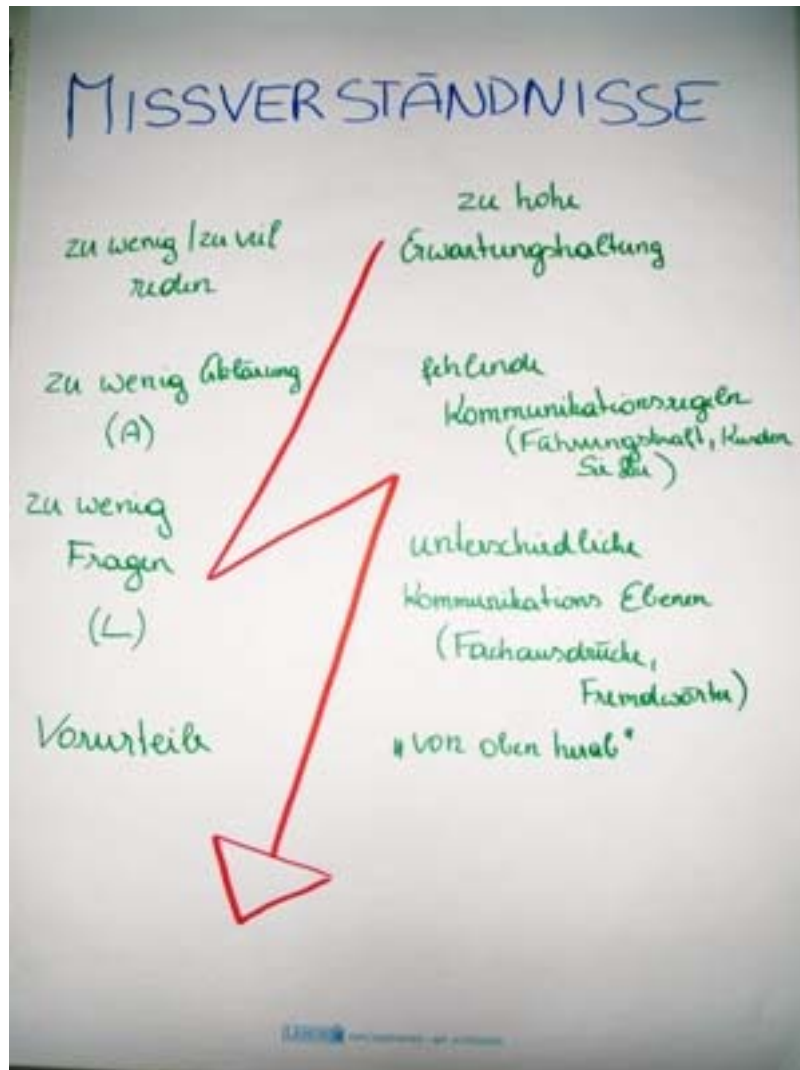 MISSVERSTÄNDNISSE
zu wenig / zu viel
reden
zu wenig Erklärung
(A)
zu wenig
Fragen
(L)
Vorurteile
zu hohe
Erwartungshaltung
fehlende
Kommunikationsregeln
(Führungskraft, Kunden
Sie
unterschiedliche
Kommunikations Ebenen
(Fachausdrücke,
Fremdwörter)
"von oben herab"